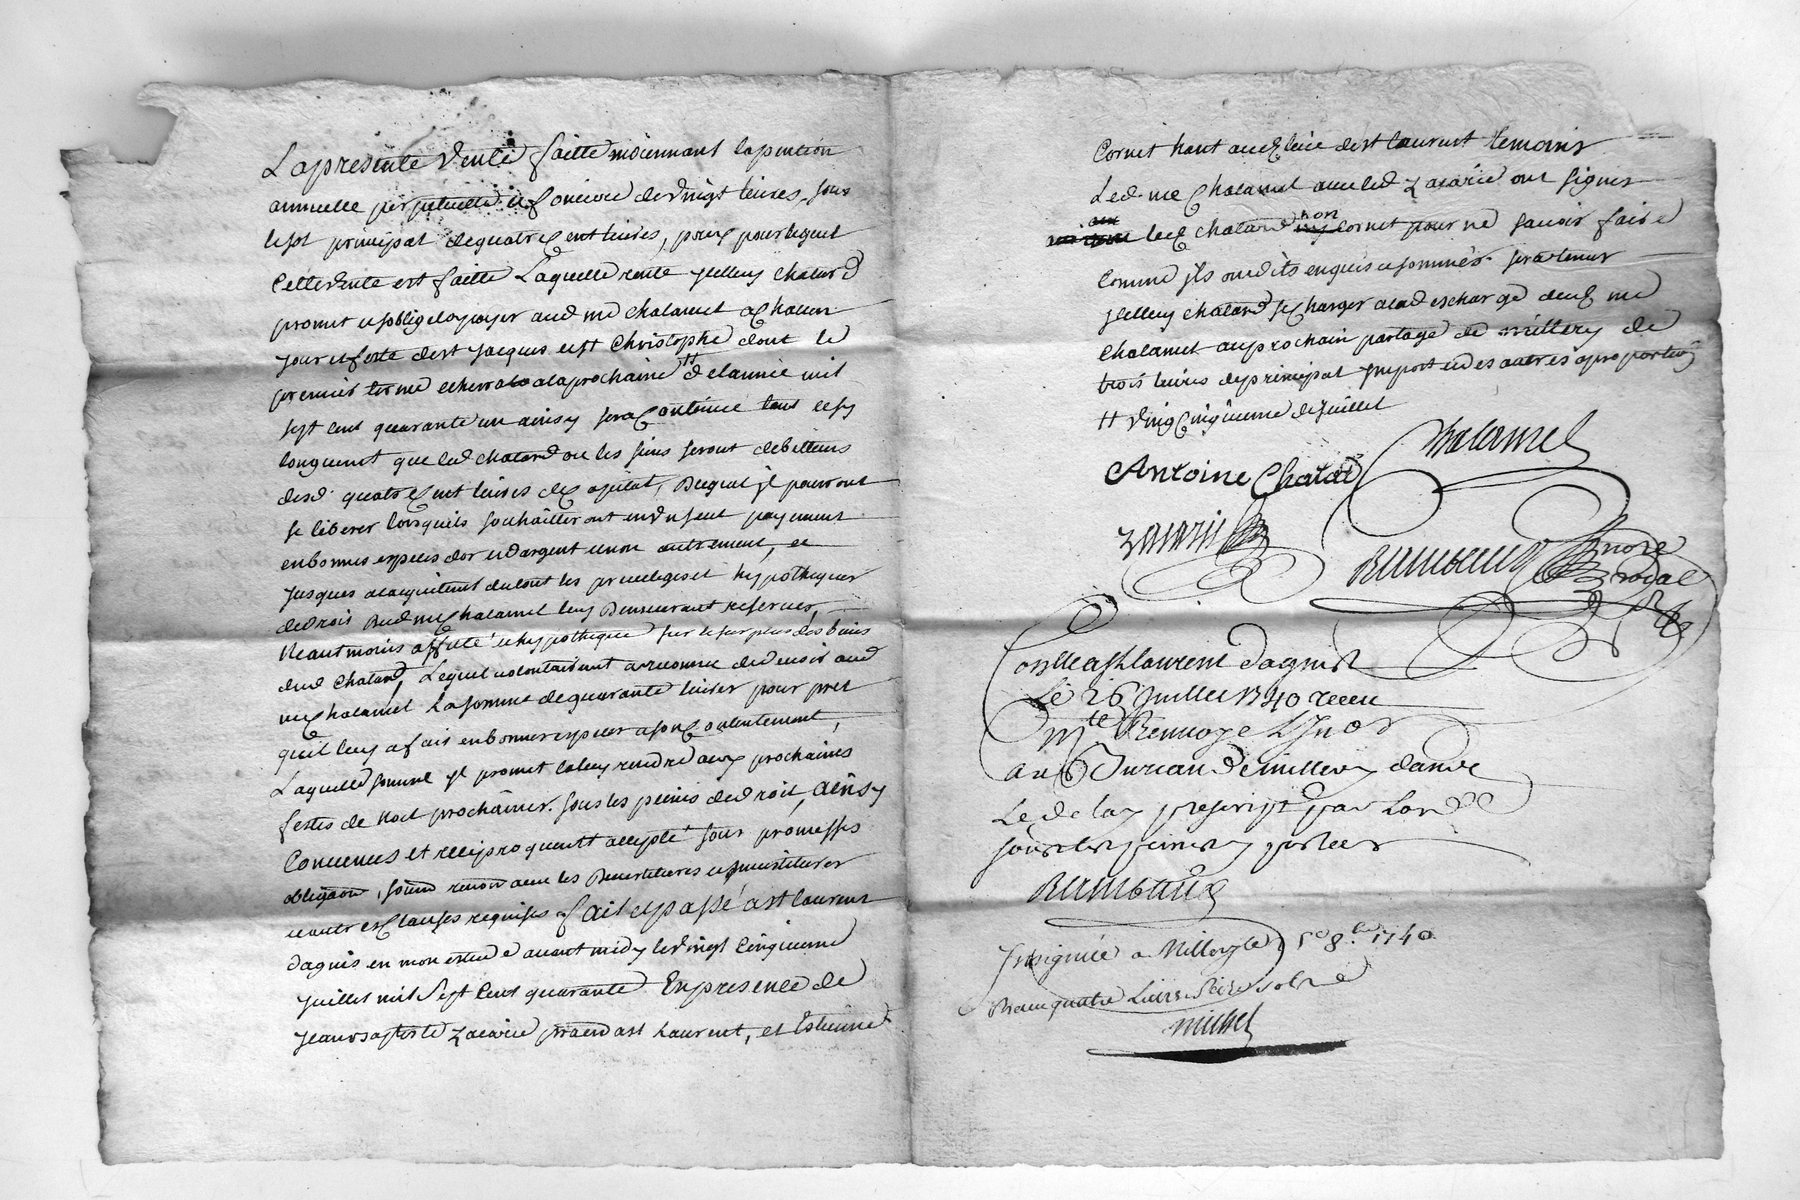 La presente vente faitte moiennant la pention
annuelle perpetuelle et fonciere de vingt livres, sous
le sort principal de quatre cent livres, prix pour lequel
cette vente est faitte Laquelle rente jcelluy chalard
promet et soblige de payer aud me chalamel a chacun
jour et feste de st jacques et st Christophe dont le
premier terme echerra a la prochaine # de lannée mil
sept cent quarante un ainsy sera continué tant et sy
longuement que led chalard ou les siens seront debitteurs
desd quatre cent livres de capital, Duquel jl pourront
se liberer lorsquils souhaitteront en un seul payement
en bonnes especes dor et dargent et non autrement, et
jusques a lacquitement du tout les privileges et hypotheques
de droit aud me chalamel luy Demeurant reservés,
Neantmoins affecté et hypotheque sur le surplus des biens
dud chalard, Lequel volontairement a reconnu devoir aud
me chalamel La somme de quarante livres pour pret
quil luy a fait en bonnes especes a son contentement,
Laquelle somme jl promet la luy rendre aux prochaines
festes de Noel prochaines. sous les peines de droit, ainsy
Convenues et reciproquement accepté sous promesses
obligaon, soumon renon avec les
et autres clauses requises fait et passé a st laurent
dagnis en mon etude avant midy le vingt cinquieme
juillet mil Sept Cent quarante En presence de
jean baptiste zacarie praen a st Laurent, et Estienne
Cornet hant aud lieu de st laurent temoins
Led me chalamel avec led zacarie ont signés
led chalard non Cornet pour ne savoir faire
Comme jls ont dits enquis et sommés. sera tenus
jcelluy chalard se charger a la descharge dud me
Chalamel au prochain partage de millery de
trois livres de principal jmport et des autres a proportion
# vingt Cinquieme de juillet
Chalamel
Antoine Chalard
zacarie
nore
royal
Conlle a st laurent dagnis
Le 26 juillet 1740 receu
Renvoyé
au Bureau de millery dans
Le delay prescript par Lord
sous les peines y portées
Insignüée a Millery le 8.bre 1740
Receu quatre Livres
michel